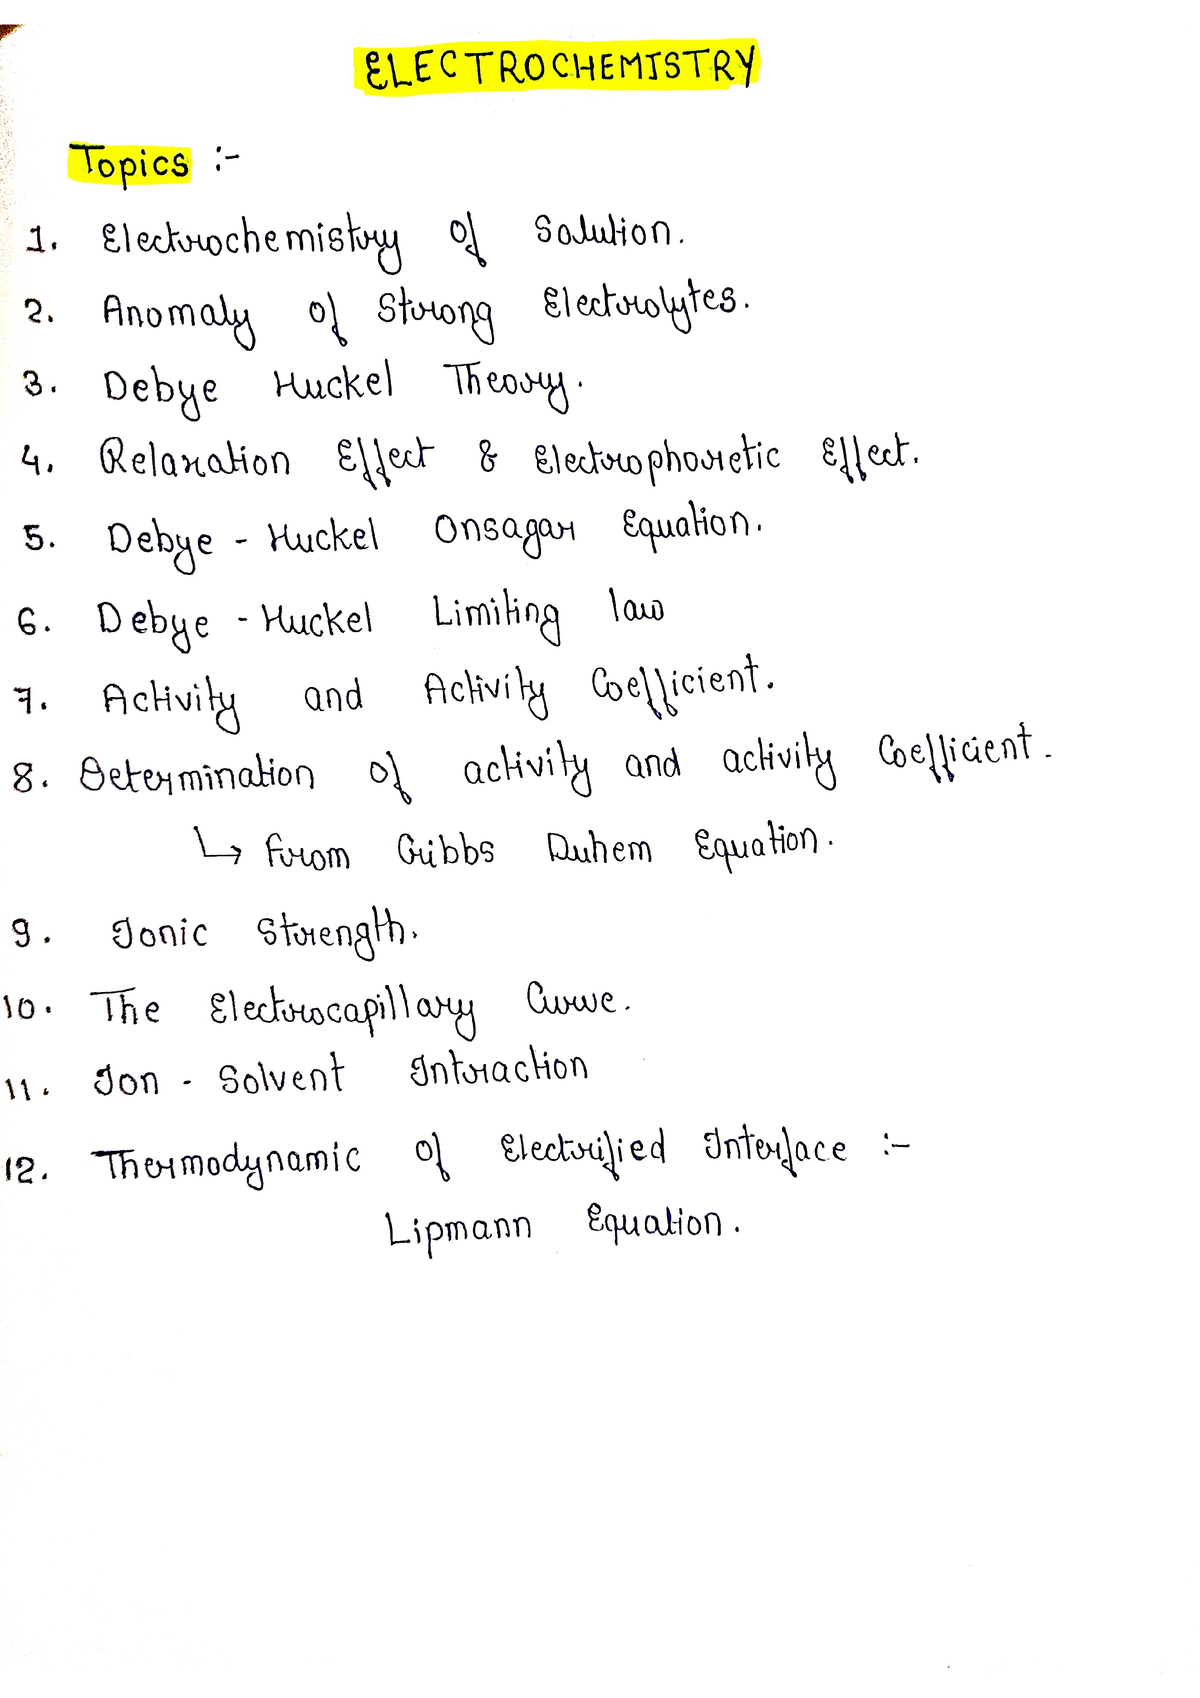 ELECTROCHEMISTRY
Topics :-
1. Electrochemistry of Solution.
2. Anomaly of Strong Electrolytes.
3. Debye Huckel Theory.
4. Relaxation Effect & Electrophoretic Effect.
5. Debye - Huckel Onsagar Equation.
6. Debye - Huckel Limiting law
7. Activity and Activity Coefficient.
8. Determination of activity and activity Coefficient.
↳ from Gibbs Duhem Equation.
9. Ionic Strength.
10. The Electrocapillary Curve.
11. Ion - Solvent Intraction
12. Thermodynamic of Electrified Interface :-
Lipmann Equation.